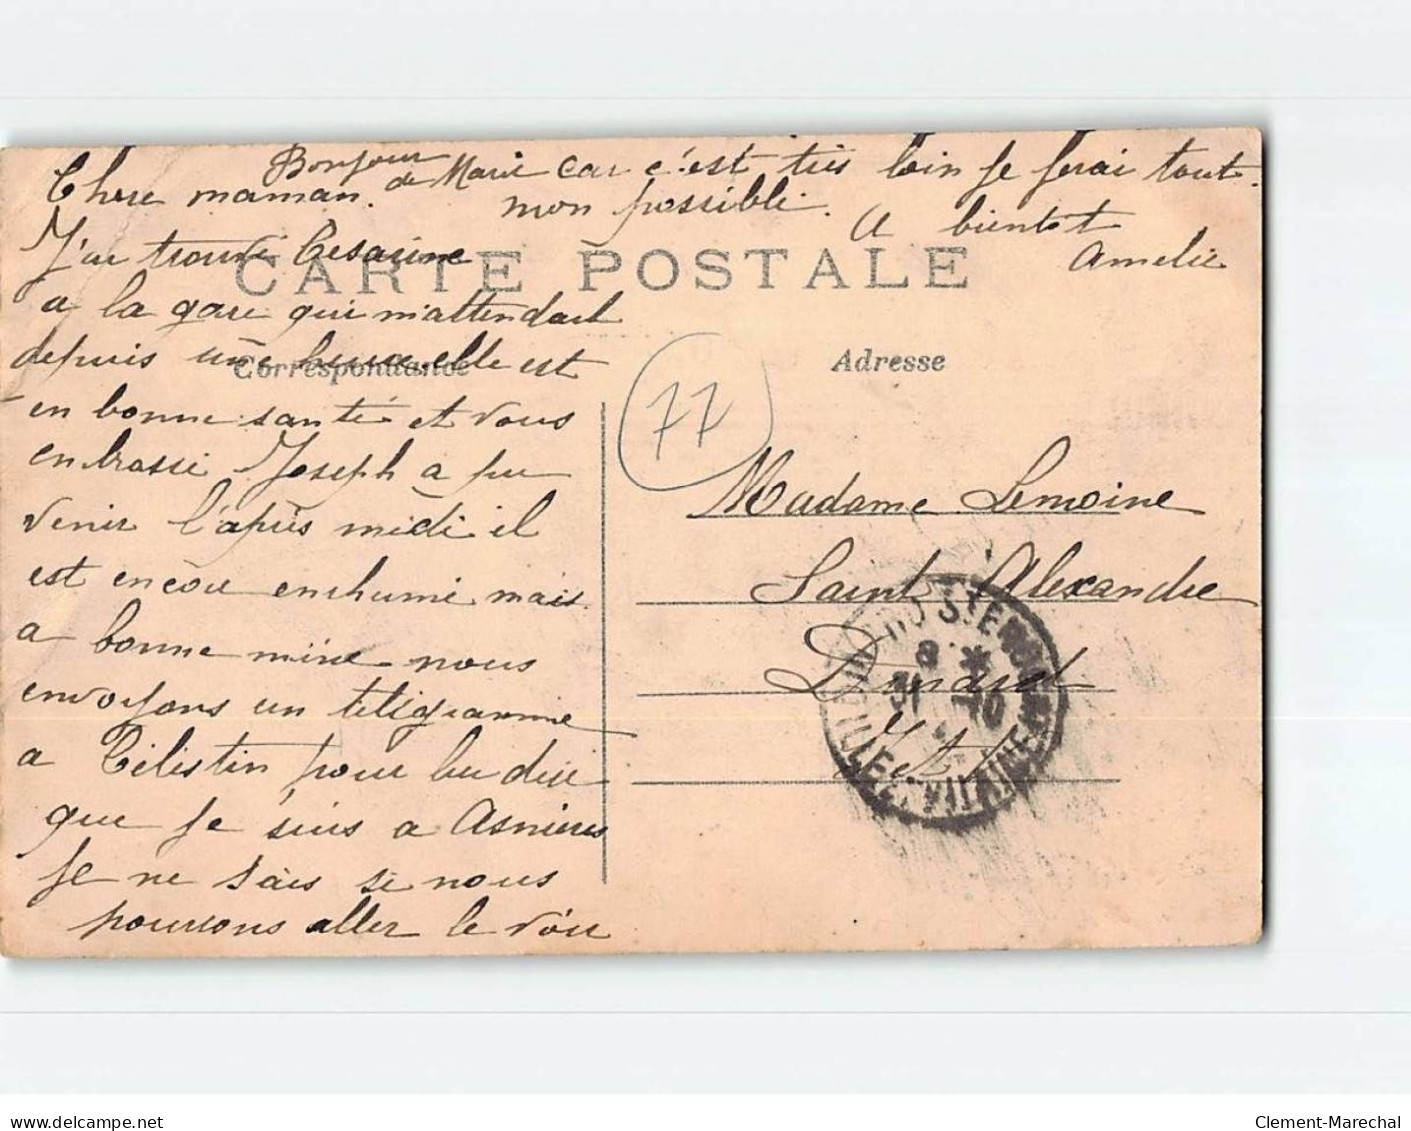 Chere maman.
J'ai trouvé Cesarine
a la gare qui m'attendait
depuis une heure. elle est
en bonne santé et vous
enbrasse Joseph a pu
venir l'après midi il
est encore enrhumé mais
a bonne mine nous
envoyons un télégramme
a Célestin pour lui dire
que je suis a Asnières
je ne sais si nous
pourrons aller le voir
car c'est très loin je ferai tout
mon possible.
A bientot
Amelie
Bonjour
de Marie
CARTE POSTALE
Correspondance
Adresse
77
Madame Lemoine
Saint Alexandre
Dinard
8 *
31 -10
ILLE
www.delcampe.net
Clement-Marechal